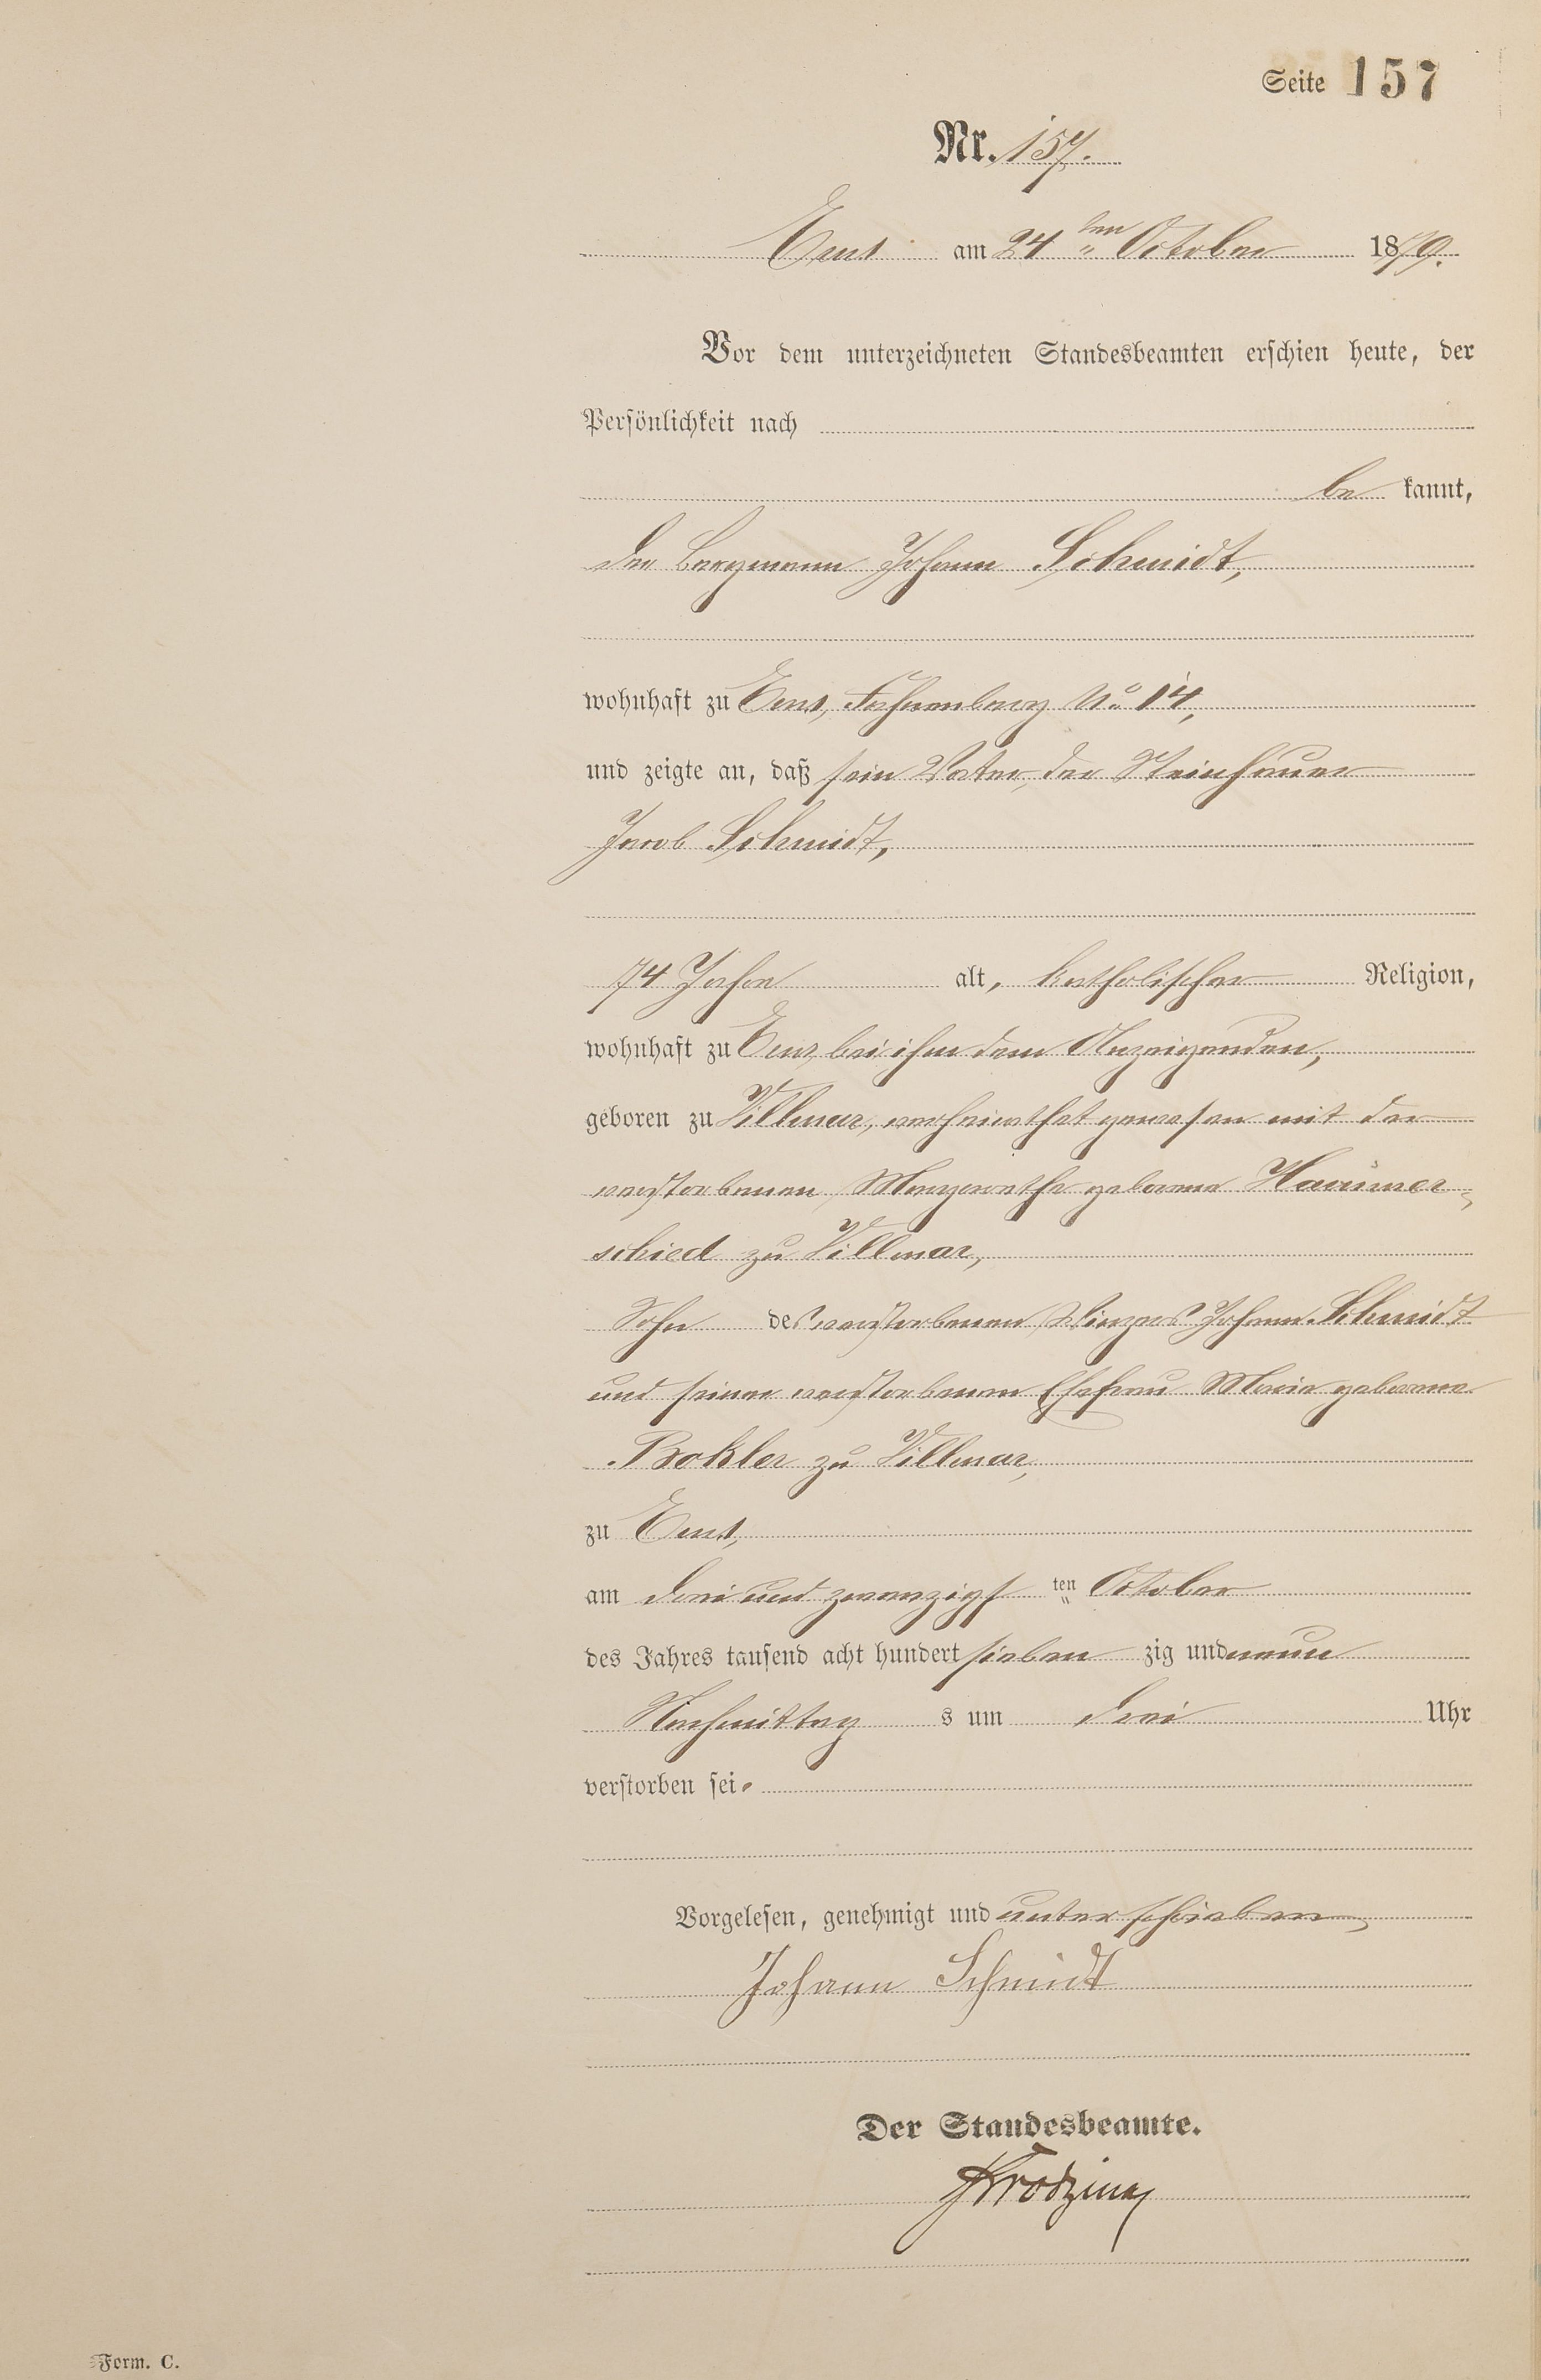 Seite 157
Nr. 157.
Ems am 24 ten October 1879.
Vor dem unterzeichneten Standesbeamten erschien heute, der
Persönlichkeit nach
be kannt,
der Bergmann Johann Schmidt,
wohnhaft zu Ems, No 14,
und zeigte an, daß sein Vater, der Steinhauer
Jacob Schmidt,
74 Jahre alt, katholischer Religion,
wohnhaft zu Ems, bei ihm dem Anzeigenden,
geboren zu Villmar, verheirathet gewesen mit der
verstorbenen Margarethe geborene Hammer-
schied zu Villmar,
Sohn des verstorbenen Johann Schmidt
und seiner verstorbenen Ehefrau Maria geborene
zu Villmar,
zu Ems,
am drei und zwanzigs ten October
des Jahres tausend acht hundert sieben zig und neun
Nachmittag s um drei Uhr
verstorben sei.
Vorgelesen, genehmigt und unterschrieben,
Johann Schmidt
Der Standesbeamte.
Form. C.